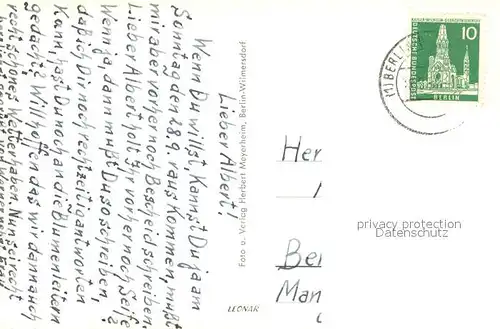 Lieber Albert!
Wenn Du willst, kannst Du ja am
Sonntag den 28.9. raus kommen, mußt
mir aber vorher noch Bescheid schreiben.
Lieber Albert holt Ihr vorher noch Seife?
Wenn ja dann mußt Du so schreiben,
daß ich Dir noch rechtzeitig antworten
kann, hast Du noch an die Blumenleitern
gedacht? Will hoffen das wir dann auch
recht schönes Wetter haben. Nun sei recht
Foto u. Verlag Herbert Meyerheim, Berlin-Wilmersdorf
LEONAR
(1) BERLI
10
DEUTSCHE BUNDESPOST
BERLIN
Her
Ber
Man
privacy protection
Datenschutz